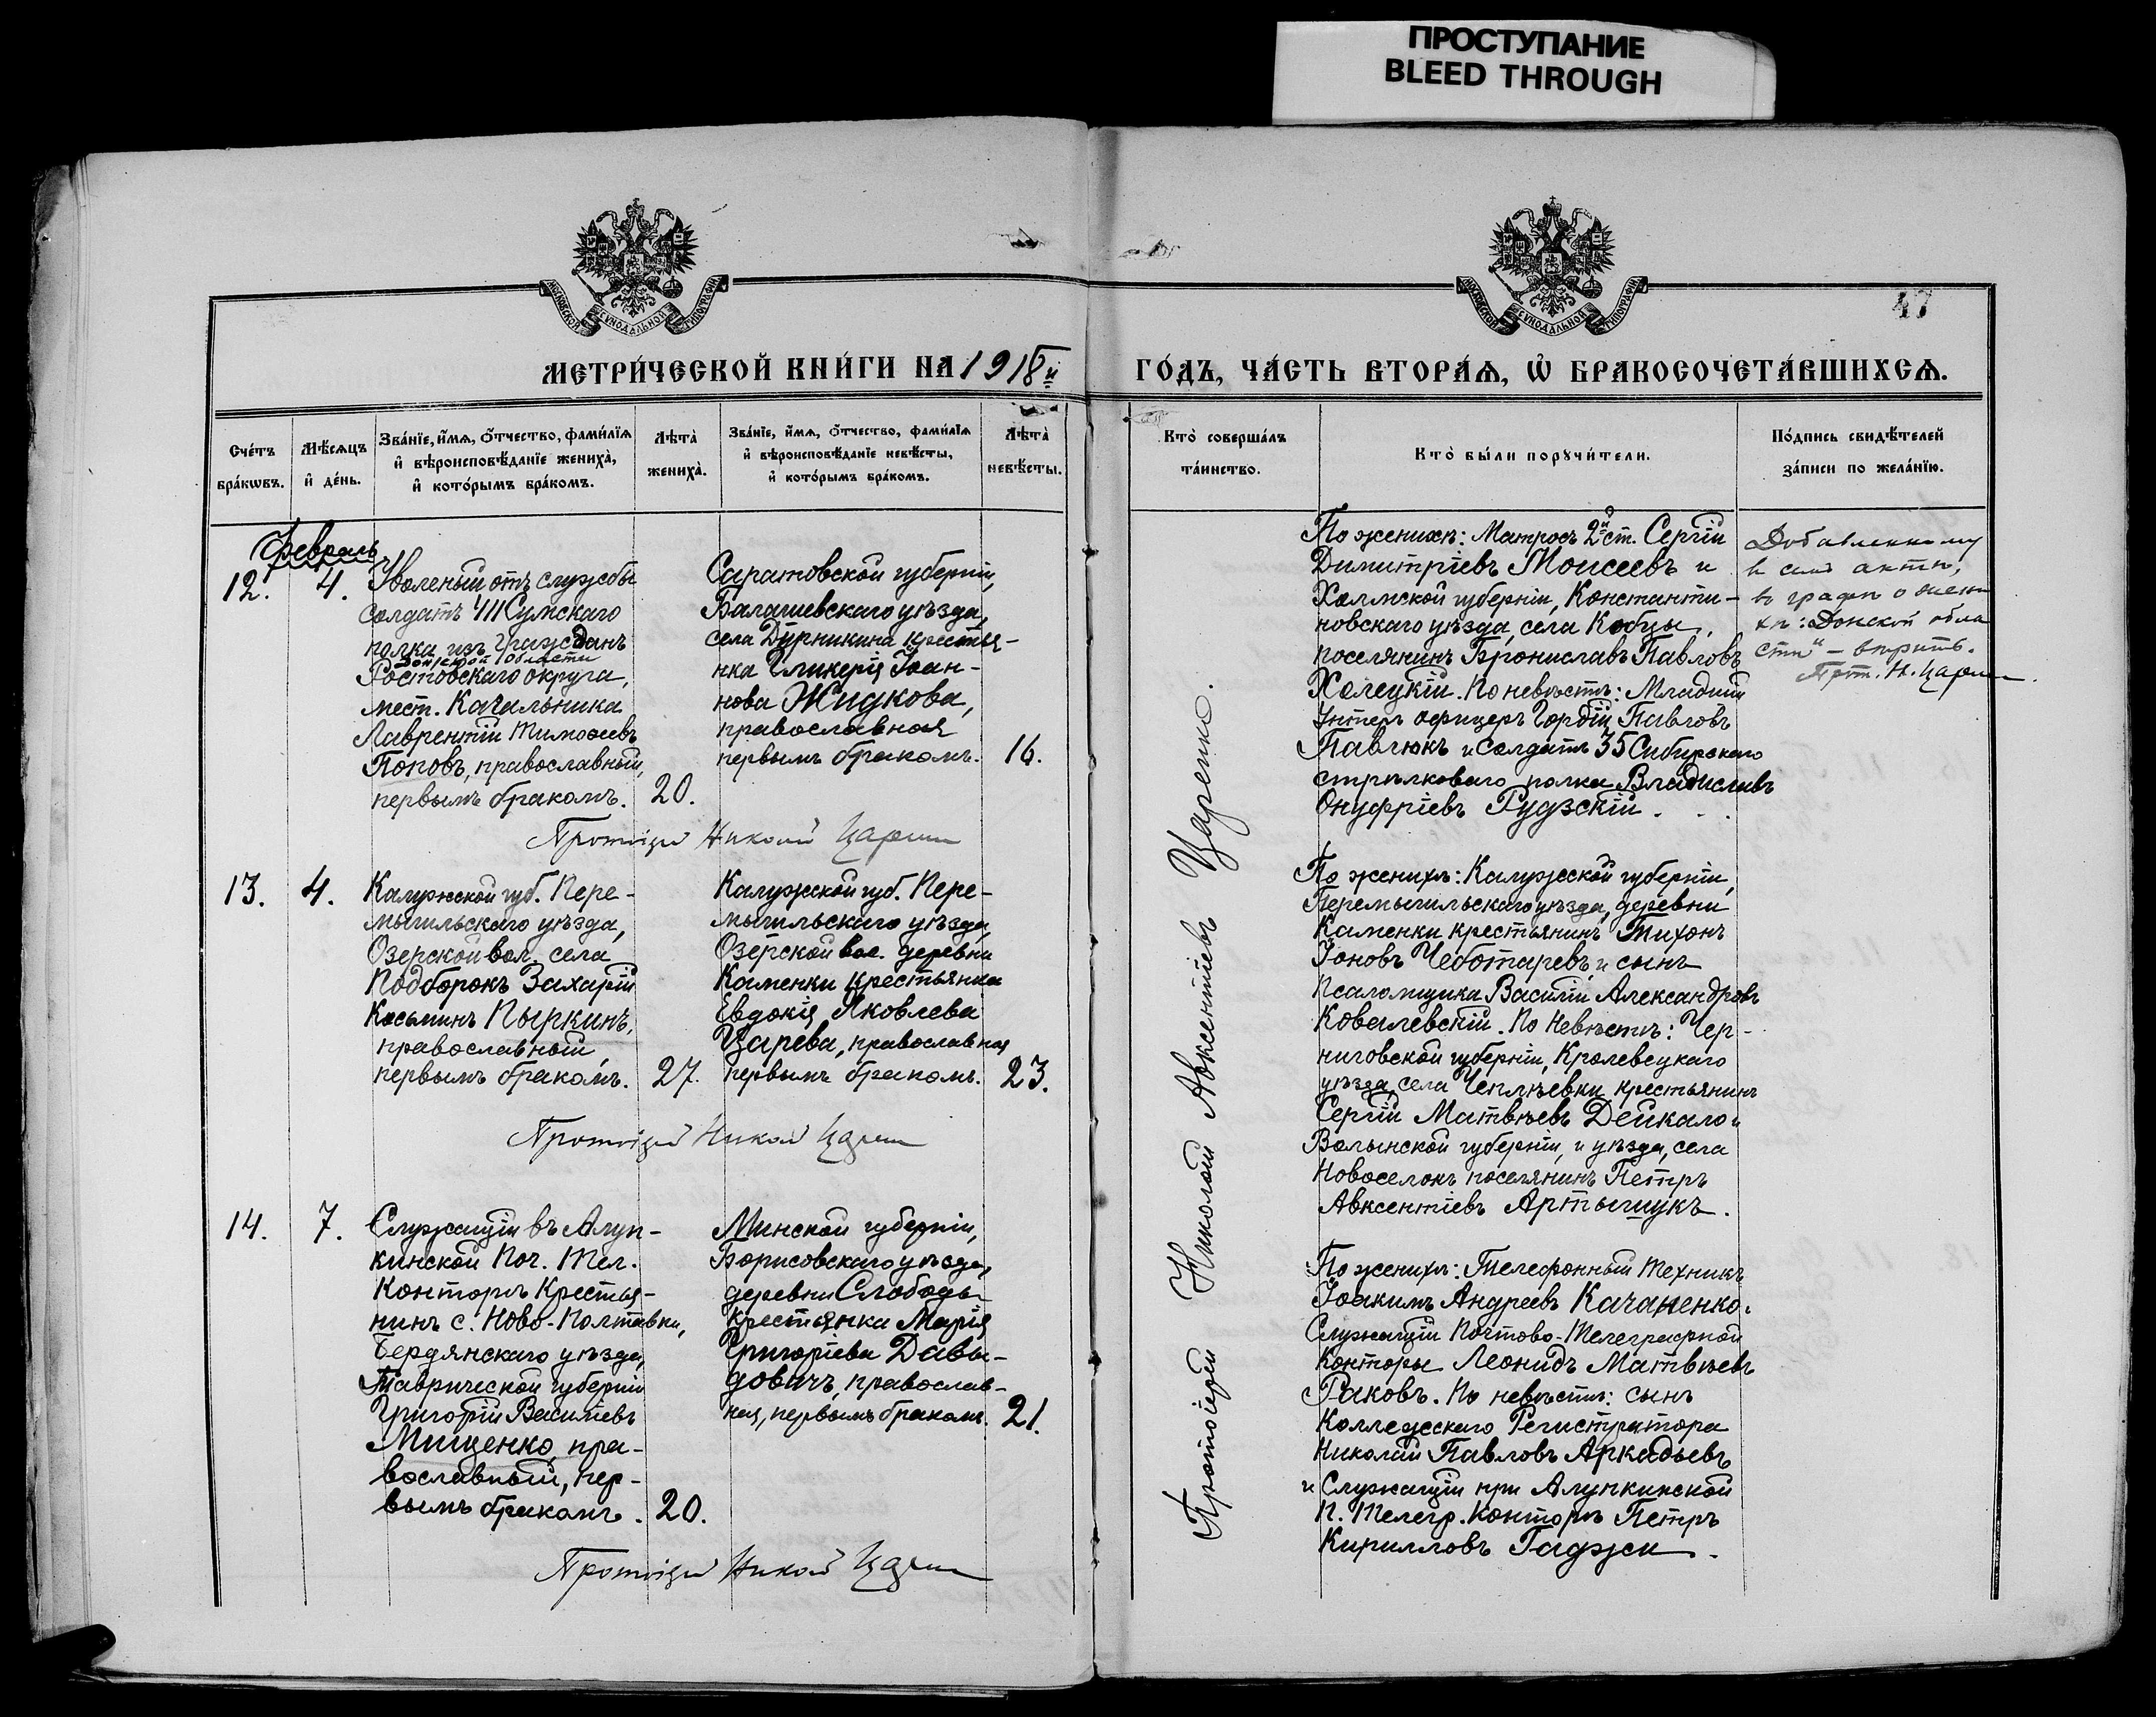 ПРОСТУПАНИЕ
BLEED THROUGH
МОСКОВСКОЙ СѴНОДАЛЬНОЙ ТИПОГРАФІИ
МОСКОВСКОЙ СѴНОДАЛЬНОЙ ТИПОГРАФІИ
47
МЕТРИ́ЧЕСКОЙ КНИ́ГИ НА 1918й
ГО́ДЪ, ЧА́СТЬ ВТОРА́Ѧ, Ѡ҆ БРАКОСОЧЕТА́ВШИХСѦ.
Сче́тъ
бра́кѡвъ.
Мѣ́сяцъ
и҆ де́нь.
Зва́нїе, и҆́мѧ, ѻ҆́тчество, фами́лїѧ
и҆ вѣроисповѣ́данїе жениха̀,
и҆ кото́рымъ бра́комъ.
Лѣта̀
жениха̀.
Зва́нїе, и҆́мѧ, ѻ҆́тчество, фами́лїѧ
и҆ вѣроисповѣ́данїе невѣ́сты,
и҆ кото́рымъ бра́комъ.
Лѣта̀
невѣ́сты.
Кто̀ соверша́лъ
та́инство.
Кто̀ бы́ли порꙋчи́тели.
По́дпись свидѣ́телей
за́писи по жела́нїю.
Февраль
12.
4.
Уволеный отъ службы
солдатъ 411 Сумскаго
полка изъ гражданъ
Донской области
Ростовскаго округа,
мест. Качальника
Лаврентій Тимоѳеевъ
Поповъ, православный,
первымъ бракомъ.
20.
Саратовской губерніи,
Балашевскаго уѣзда,
села Дурникина крестья-
нка Гликерія Іоан-
нова Жидкова,
православная
первымъ бракомъ.
16.
Протоіерей Николай Царенко
По женихѣ: Матросъ 2й ст. Сергій
Димитріевъ Моисеевъ и
Холмской губерніи, Константи-
новскаго уѣзда, села Кобцы,
поселянинъ Брониславъ Павловъ
Холецкій. По невѣстѣ: Младшій
Унтеръ офицеръ Гордій Павловъ
Павлюкъ и солдатъ 35 Сибирскаго
стрѣлковаго полка Владиславъ
Онуфріевъ Рудзскій.
Добавленному
в семъ актѣ,
въ графѣ о жени
хѣ: "Донской обла
сти" – вѣрить.
Прот. Н. Царенко.
13.
4.
Калужской губ. Пере-
мышльскаго уѣзда,
Озерской вол. села
Подборокъ Захарій
Косьминъ Пыркинъ,
православный,
первымъ бракомъ.
27.
Калужской губ. Пере-
мышльскаго уѣзда,
Озерской вол. деревни
Каменки крестьянка
Евдокія Яковлева
Царева, православная
первымъ бракомъ.
23.
Протоіерей Николай Царенко
По женихѣ: Калужской губерніи,
Перемышльскаго уѣзда, деревни
Каменки крестьянинъ Тихонъ
Іоновъ Чеботаревъ и сынъ
Псаломщика Василій Александровъ
Ковалевскій. По невѣстѣ: Чер-
ниговской губерніи, Кролевецкаго
уѣзда, села Чеплѣевки крестьянинъ
Сергій Матвѣевъ Дейкало и
Волынской губерніи, и уѣзда, села
Новоселокъ поселянинъ Петръ
Авксентіевъ Артышукъ.
14.
7.
Служащій въ Алуп-
кинской Поч. Тел.
Конторѣ Крестья-
нинъ с. Ново-Полтавки,
Бердянскаго уѣзда,
Таврической губерніи
Григорій Василіевъ
Мищенко, пра-
вославный, пер-
вымъ бракомъ.
20.
Минской губерніи,
Борисовскаго уѣзда,
деревни Слободы
крестьянка Марія
Григоріева Давы-
довичъ, православ-
ная, первымъ бракомъ.
21.
Протоіерей Николай Царенко
По женихѣ: Телефонный Техникъ
Іоакимъ Андреевъ Качаненко.
Служащій Почтово-Телеграфной
Конторы Леонидъ Матвѣевъ
Раковъ. По невѣстѣ: сынъ
Коллежскаго Регистратора
Николай Павловъ Аркадьевъ
и Служащій при Алупкинской
П. Телегр. Конторѣ Петръ
Кирилловъ Гаджи.
Протоіерей Николай Авксентіевъ Царенко.